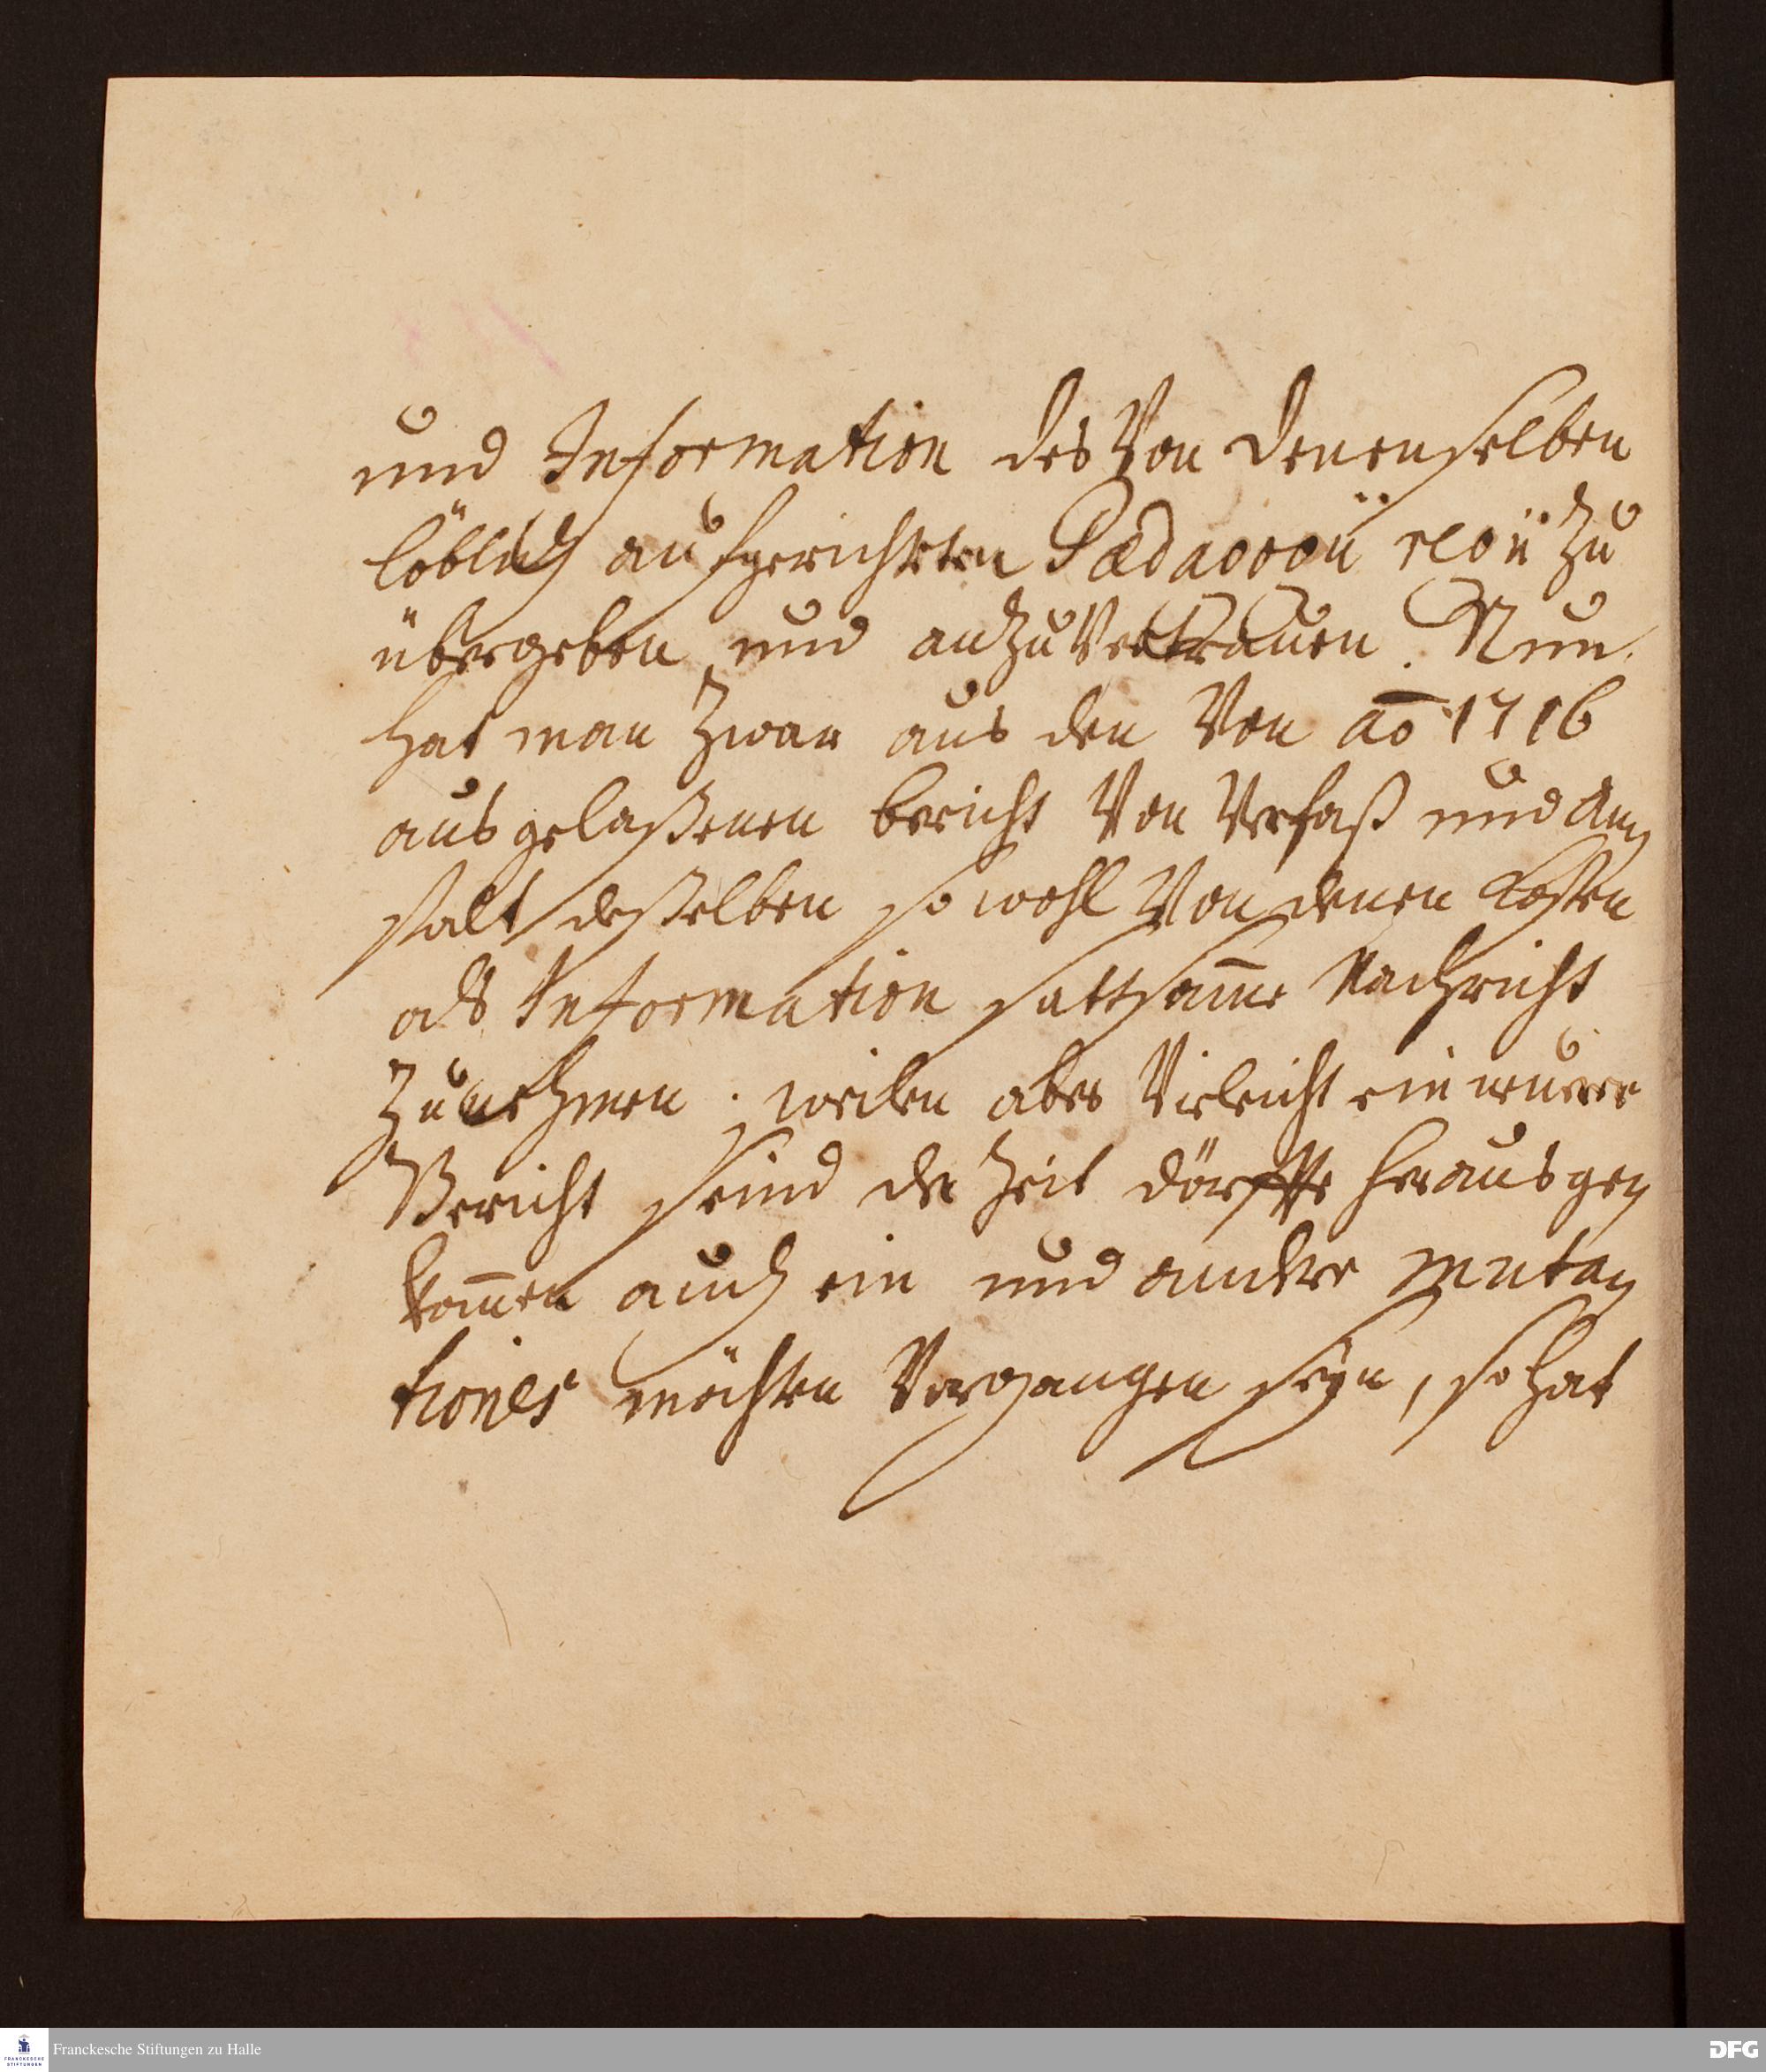 und Information des Von denenselben
löblich aufgerichteten Pædagogÿ regÿ zu
übergeben und anzuVertrauen. Nun
hat man zwar aus den Von ao 1716
ausgelaßenen bericht Von Verfaß und An⸗
stalt deßelben so wohl Von denen Kosten
als Information sattsam̄e Nachricht
zunehmen. weilen aber Vieleicht ein neuere
Bericht seind der Zeit dörffte herausge⸗
kom̄en auch ein und andere muta⸗
tiones möchten Vorgangen seÿn, so hat
Franckesche Stiftungen zu Halle
FRANCKESCHE
STIFTUNGEN
DFG